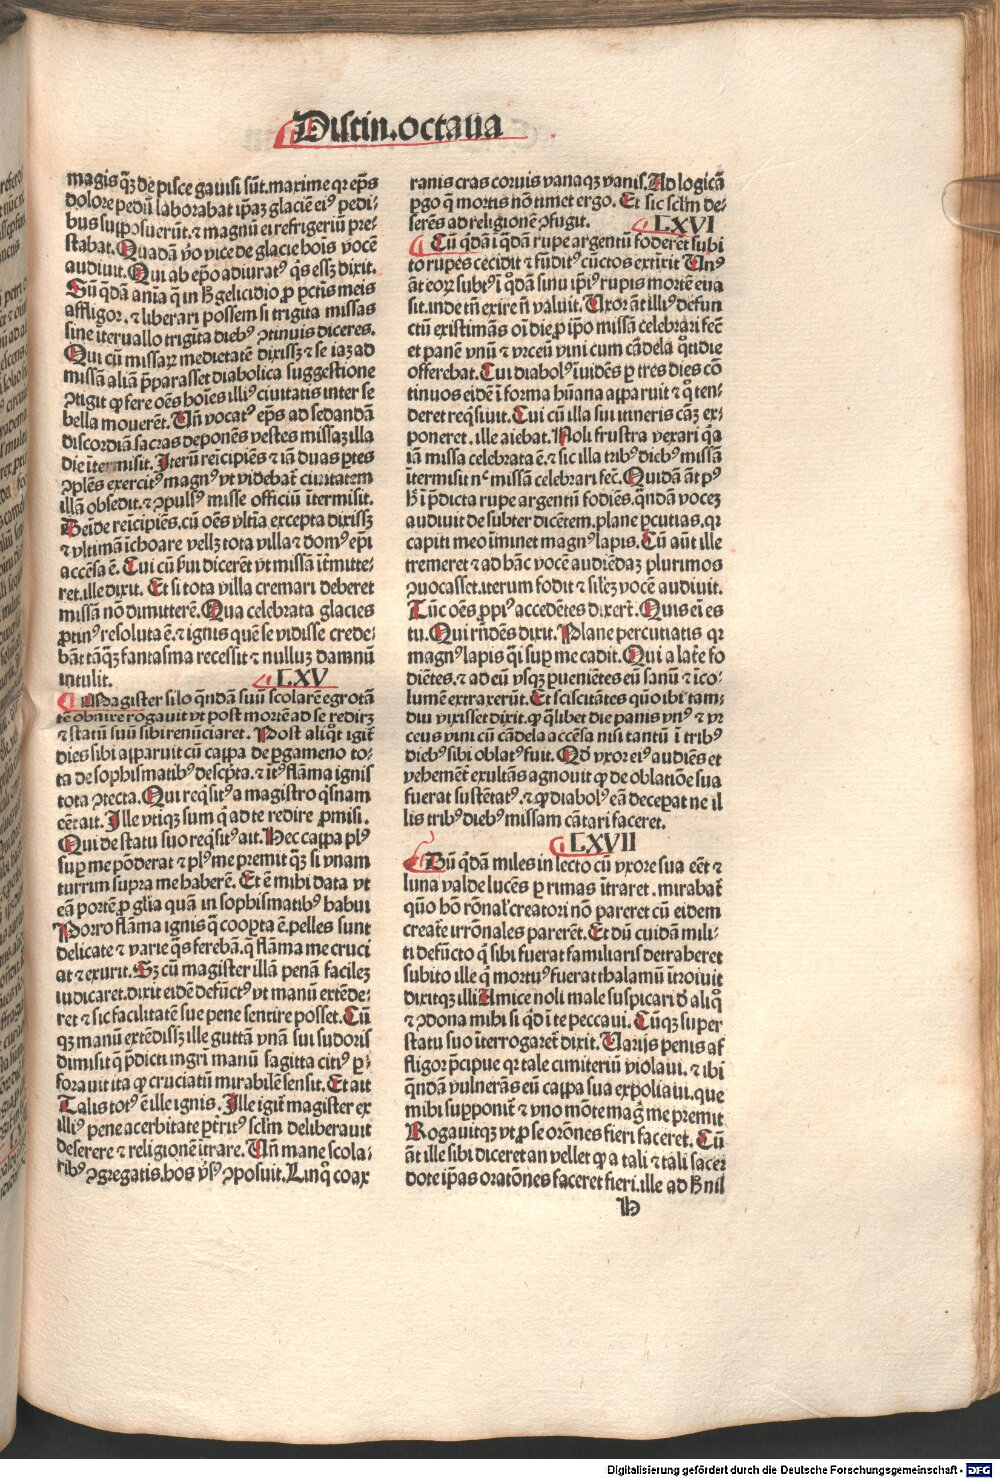 Distin.octaua
magis qʒ de pisce gauisi sūt.maxime qr ep̄s
dolore pedū laborabat ip̄aʒ glaciē eiꝰ pedi-
bus supposuerūt.⁊ magnū ei refrigeriū pre-
stabat. Quadā v̄o vice de glacie hoīs vocē
audiuit. Qui ab ep̄o adiuratꝰ q̄s essʒ dixit.
Sū q̄dā aīa q̄ in h̄ gelicidio ꝓ pctīs meis
affligor.⁊ liberari possem si trigīta missas
sine īteruallo trigīta diebꝰ ꝯtinuis diceres.
Qui cū missaꝝ medietatē dixissʒ ⁊ se iaʒ ad
missā aliā p̄parasset diabolica suggestione
ꝯtigit ꝙ fere oēs hoīes illiꝰ ciuitatis inter se
bella mouerēt. Un̄ vocatꝰ ep̄s ad sedandā
discordiā sacras deponēs vestes missaʒ illa
die ītermisit. Iterū reīcipiēs ⁊ iā duas ꝑtes
ꝯplēs exercitꝰ magnꝰ vt videbat̄ ciuitatem
illā obsedit.⁊ ꝯpulsꝰ misse officiū ītermisit.
Deīde reīcipiēs.cū oēs vltīa excepta dixissʒ
⁊ vltimā īchoare vellʒ tota villa ⁊ domꝰ ep̄i
accēsa ē. Cui cū s̄ui dicerēt vt missā īt̄mitte-
ret.ille dixit. Et si tota villa cremari deberet
missā nō dimitterē. Qua celebrata glacies
ꝓtinꝰ resoluta ē.⁊ ignis quē se vidisse crede-
bāt tāqʒ fantasma recessit ⁊ nulluʒ damnū
intulit. LXV
Magister silo quēdā suū scolarē egrotā
tē obnixe rogauit vt post mortē ad se redirʒ
⁊ statū suū sibi renūciaret. Post aliqt̄ igit̄
dies sibi apparuit cū cappa de ꝑgameno to-
ta de sophismatibꝰ descp̄ta.⁊ ītꝰ flāma ignis
tota ꝯtecta. Qui reqsitꝰ a magistro qsnam
eēt ait. Ille vtiqʒ sum q̄ ad te redire ꝓmisi.
Qui de statu suo reqsitꝰ ait. Hec cappa plꝰ
suꝑ me pōderat ⁊ plꝰ me premit qʒ si vnam
turrim supra me haberē. Et ē mihi data vt
eā portē ꝓ gl̄ia quā in sophismatibꝰ habui
Porro flāma ignis q̄ coopta ē.pelles sunt
delicate ⁊ varie q̄s ferebā.q̄ flāma me cruci
at ⁊ exurit. Sʒ cū magister illā penā facileʒ
iudicaret.dixit eidē defūctꝰ vt manū extēde-
ret ⁊ sic facilitatē sue pene sentire posset. Cū
qʒ manū extēdissʒ ille guttā vnā sui sudoris
dimisit q̄ p̄dicti mgr̄i manū sagitta citiꝰ ꝑ-
forauit ita ꝙ cruciatū mirabilē sensit. Et ait
Talis totꝰ ē ille ignis. Ille igit̄ magister ex
illiꝰ pene acerbitate ꝑt̄ritꝰ scl̄m deliberauit
deserere ⁊ religionē ītrare. Un̄ mane scola-
ribꝰ ꝯgregatis.hos ṽsꝰ ꝯposuit. Linq̄o coax
ranis cras coruis vanaqʒ vanis. Ad logicā
ꝑgo q̄ mortis nō timet ergo. Et sic scl̄m de-
serēs ad religionē ꝯfugit. LXVI
Cū q̄dā ī q̄dā rupe argentū foderēt subi
to rupes cecidit ⁊ fūditꝰ cūctos extīxit Unꝰ
āt eoꝝ subtꝰ ī q̄dā sinu ip̄iꝰ rupis mortē eua
sit.inde tn̄ exire n̄ valuit. Uxor āt illiꝰ defun
ctū existimās oī die ꝓ ip̄o missā celebrari fec̄
et panē vnū ⁊ vrceū vini cum cādela q̄tidie
offerebat. Cui diabolꝰ īuidēs ꝑ tres dies cō
tinuos eidē ī forma hūana apparuit ⁊ q̄ ten-
deret reqsiuit. Cui cū illa sui itineris cāʒ ex-
poneret.ille aiebat. Noli frustra vexari q̄a
iā missa celebrata ē.⁊ sic illa tribꝰ diebꝰ missā
ītermisit nᶜ missā celebrari fec̄. Quidā āt pꝰ
h̄ ī p̄dicta rupe argentū fodiēs.quādā voceʒ
audiuit de subter dicētem.plane ꝑcutias.qr
capiti meo īminet magnꝰ lapis. Cū aūt ille
tremeret ⁊ ad hāc vocē audiēdaʒ plurimos
ꝯuocasset.iterum fodit ⁊ sil̄eʒ vocē audiuit.
Tūc oēs ꝓpiꝰ accedētes dixert̄. Quis eī es
tu. Qui rn̄dēs dixit. Plane percutiatis qr
magnꝰ lapis q̄si suꝑ me cadit. Qui a late fo
diētes.⁊ ad eū vsqʒ pueniētes eū sanū ⁊ īco-
lumē extraxerūt. Et sciscitātes quō ibi tam-
diu vixisset dixit.ꝙ qlibet die panis vnꝰ ⁊ vr
ceus vini cū cādela accēsa nisi tantū ī tribꝰ
diebꝰ sibi oblatꝰ fuit. Qd̄ vxor eiꝰ audiēs et
vehemēt̄ exultās agnouit ꝙ de oblatiōe sua
fuerat sustētatꝰ.⁊ ꝙ diabolꝰ eā deceꝑat ne il
lis tribꝰ diebꝰ missam cātari faceret.
LXVII
Dū q̄dā miles in lecto cū vxore sua eēt ⁊
luna valde lucēs ꝑ rimas ītraret.mirabat̄
quō hō rōnal̓ creatori nō pareret cū eidem
create irrōnales parerēt. Et dū cuidā mili-
ti defūcto q̄ sibi fuerat familiaris detraheret
subito ille q̄ mortuꝰ fuerat thalamū ītroiuit
dixitqʒ illi Amice noli male suspicari d̄ aliq̄
⁊ ꝯdona mihi si q̄d ī te peccaui. Cūqʒ super
statu suo īterrogaret̄ dixit. Uarijs penis af
fligor p̄cipue qr tale cimiteriū violaui.⁊ ibi
quēdā vulnerās eū cappa sua expoliaui.que
mihi supponit̄ ⁊ vno mōte mag̓ me premit
Rogauitqʒ vt ꝓ se orōnes fieri faceret. Cū
āt ille sibi diceret an vellet ꝙ a tali ⁊ tali sacer
dote ip̄as oratōnes faceret fieri.ille ad h̄ nil
h
Digitalisierung gefördert durch die Deutsche Forschungsgemeinschaft - DFG